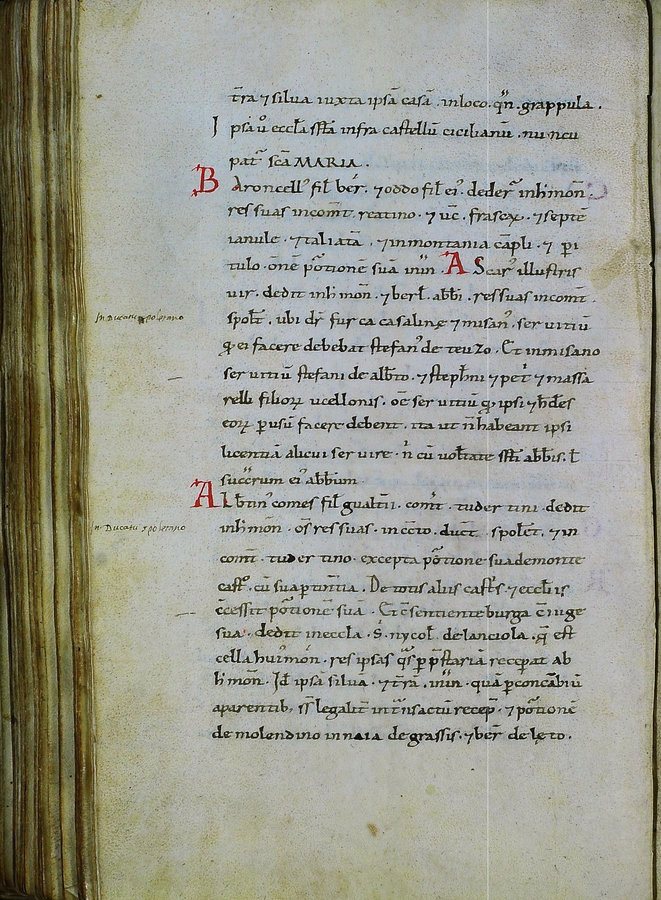 t̄ra ⁊ silua iuxta ipsā casā . in loco . qn̄ . grappula .
Ipsa u̓ eccl̄a s̄sta infra castellū cicilianū . nuncu
pat̓ sc̄a MARIA .
Baroncell᾽ fil̄ ber̄ . ⁊ oddo fil̄ ei᾽ . deder̄ inh̓ mon̄
res suas in comit̄ . reatino . ⁊ uc̄ . frasex . ⁊ septē
ianule . ⁊ taliatā . ⁊ in montania cāpli . ⁊ pi
tulo . om̄e portionē suā inin̄ . AScar᾽ illustris
uir . dedit inh̓ mon̄ . ⁊ berl̄ . abbi . res suas in comit̄ .
spolt̄ . ubi dr̄ furca casalinę ⁊ misan᾽ . seruitiū
In Ducatu spoletano
q̄ ei facere debebat stefan᾽ de teuzo . Et in misano
seruitiū stefani de alb̄to . ⁊ steph̄ni ⁊ pet̓ ⁊ massa
relli filioꝝ ucellonis . oē seruitiū q̄ ipsi ⁊ h̓des
eoꝝ p usū facere debent . ita ut n̄ habeant ipsi
licentiā alicui seruire . n̓ cū uoltate s̄sti abbis . l̄
succ̄rum ei᾽ abbum .
Alb̄tin᾽ comes fil̄ gualt̄ii . comit̄ . tudertini . dedit
inh̓ mon̄ . oēs res suas . in cc̄io . duct̄ . spolet̄ . ⁊ in
In Ducatu spoletano
comit̄ . tudertino . excepta portione sua de monte
cast̓ . cū sua ptin̄tia . De totis aliis cast̓s ⁊ eccl̄iis
c̄cessit portionē suā . Et c̄sentiente burga c̄iuge
sua . dedit in eccl̄a . S . nycol̄ . de lanciola . q̄ est
cella hui᾽ mon̄ . res ipsas q̄s p p̄stariā recepat ab
h̓ mon̄ . Id̄ ipsa siluā . ⁊ t̄rā . inin̄ . quā p concābiū
a parentib; s̄s legalit̄ in t̄nsactū recep̄ . ⁊ portionē
de molendino in naia de grassis . ⁊ ber̄ de lęto .